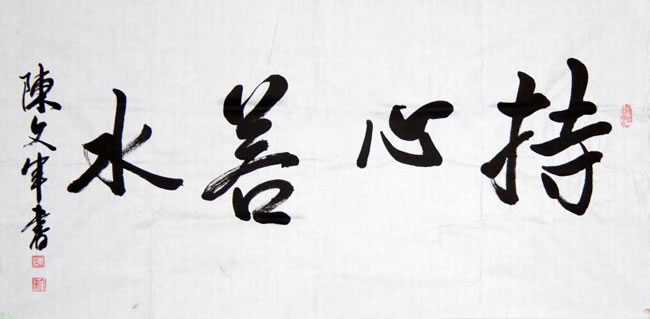 持心若水
陳文書